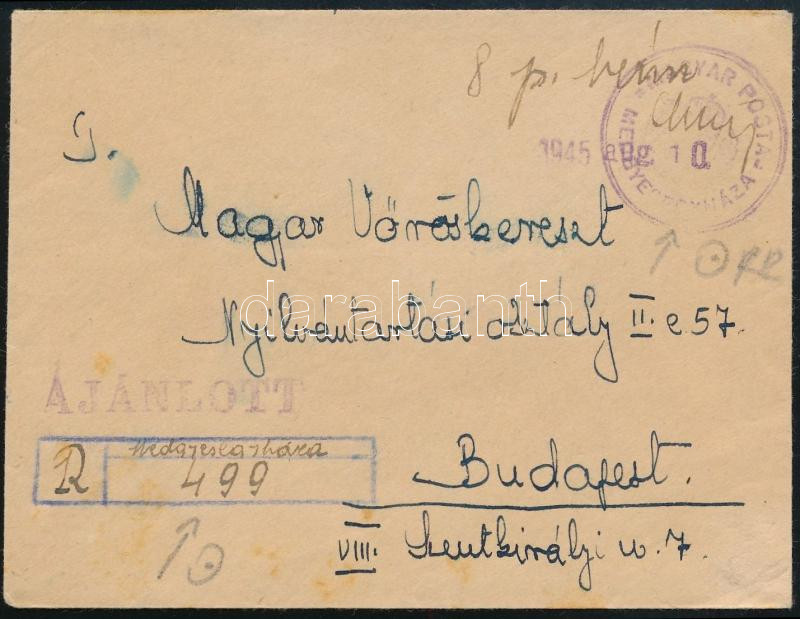 8 p. bérm
MAGYAR POSTA
MEDGYESEGYHÁZA
1945 aug. 10.
T.
Magyar Vöröskereszt
Nyilvántartási osztály II. e 57.
darabanth
ÁJÁNLOTT
R
Medgyesegyháza
499
Budapest.
VIII. Szentkirályi u. 7.
RR